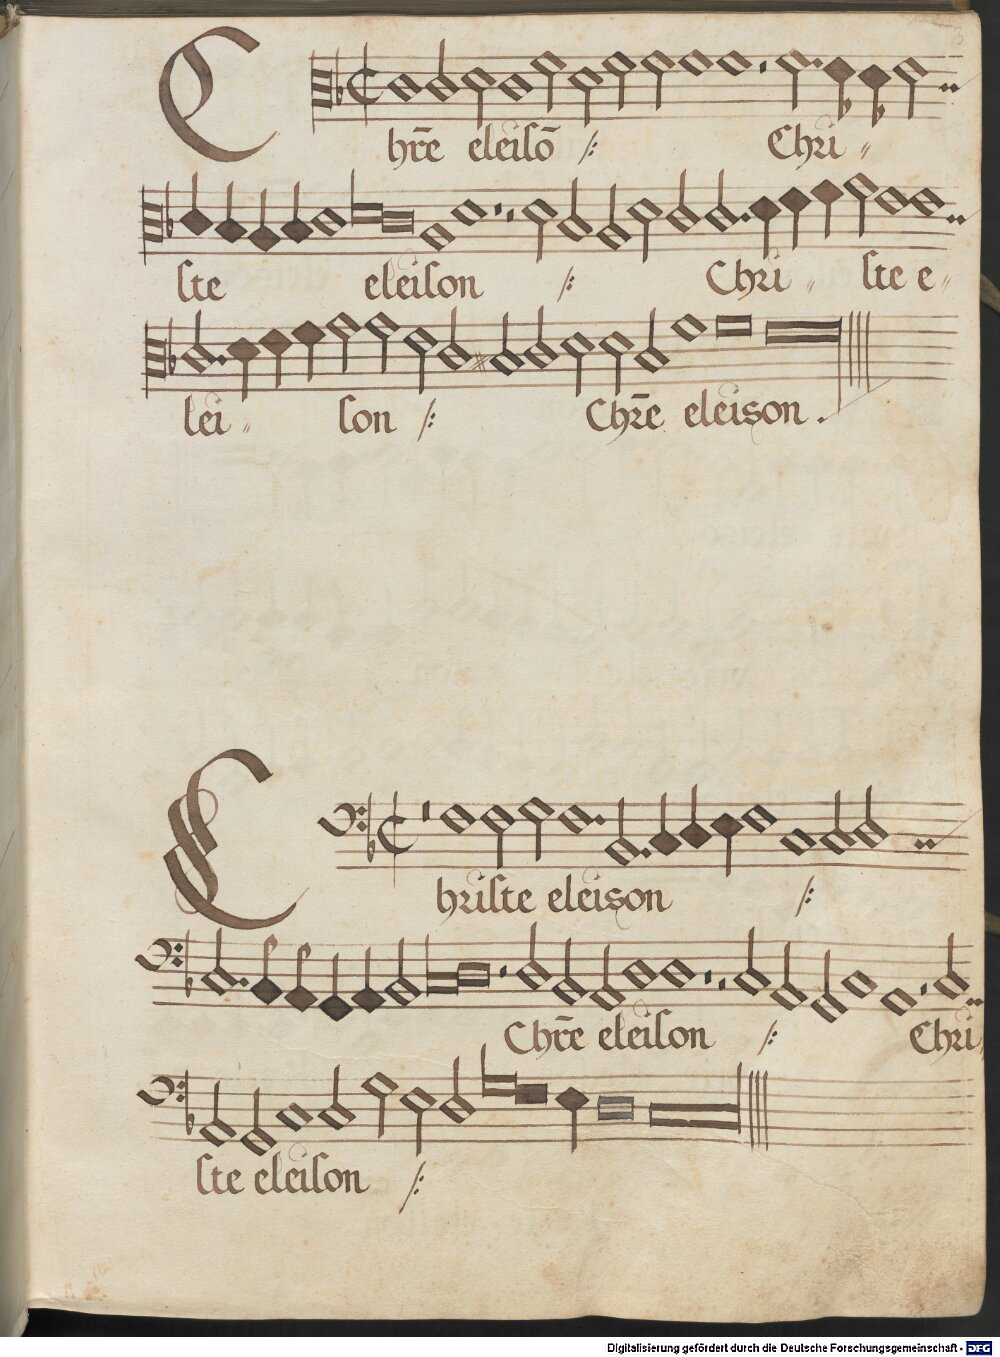 3
Chr̄e eleisō ⁒ Chri〃
ste eleison ⁒ Chri〃 ste e〃
lei〃 son ⁒ Chr̄e eleison .
Christe eleison ⁒
Chr̄e eleison ⁒ Chri
ste eleison ⁒
Digitalisierung gefördert durch die Deutsche Forschungsgemeinschaft - DFG